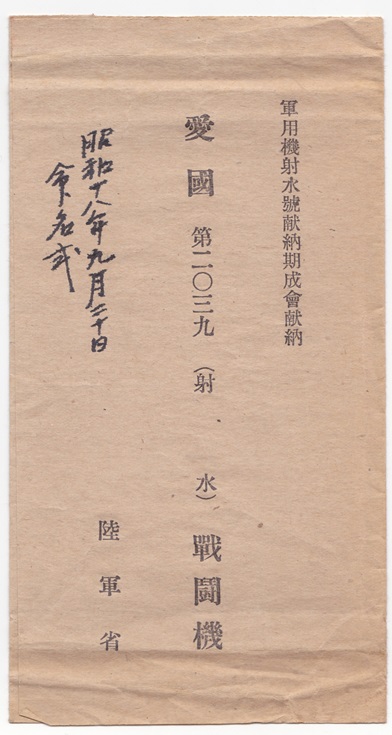 軍用機射水號献納期成會献納
愛國第二〇三九（射水）戰鬪機
陸軍省
昭和十八年九月二十日
命名式